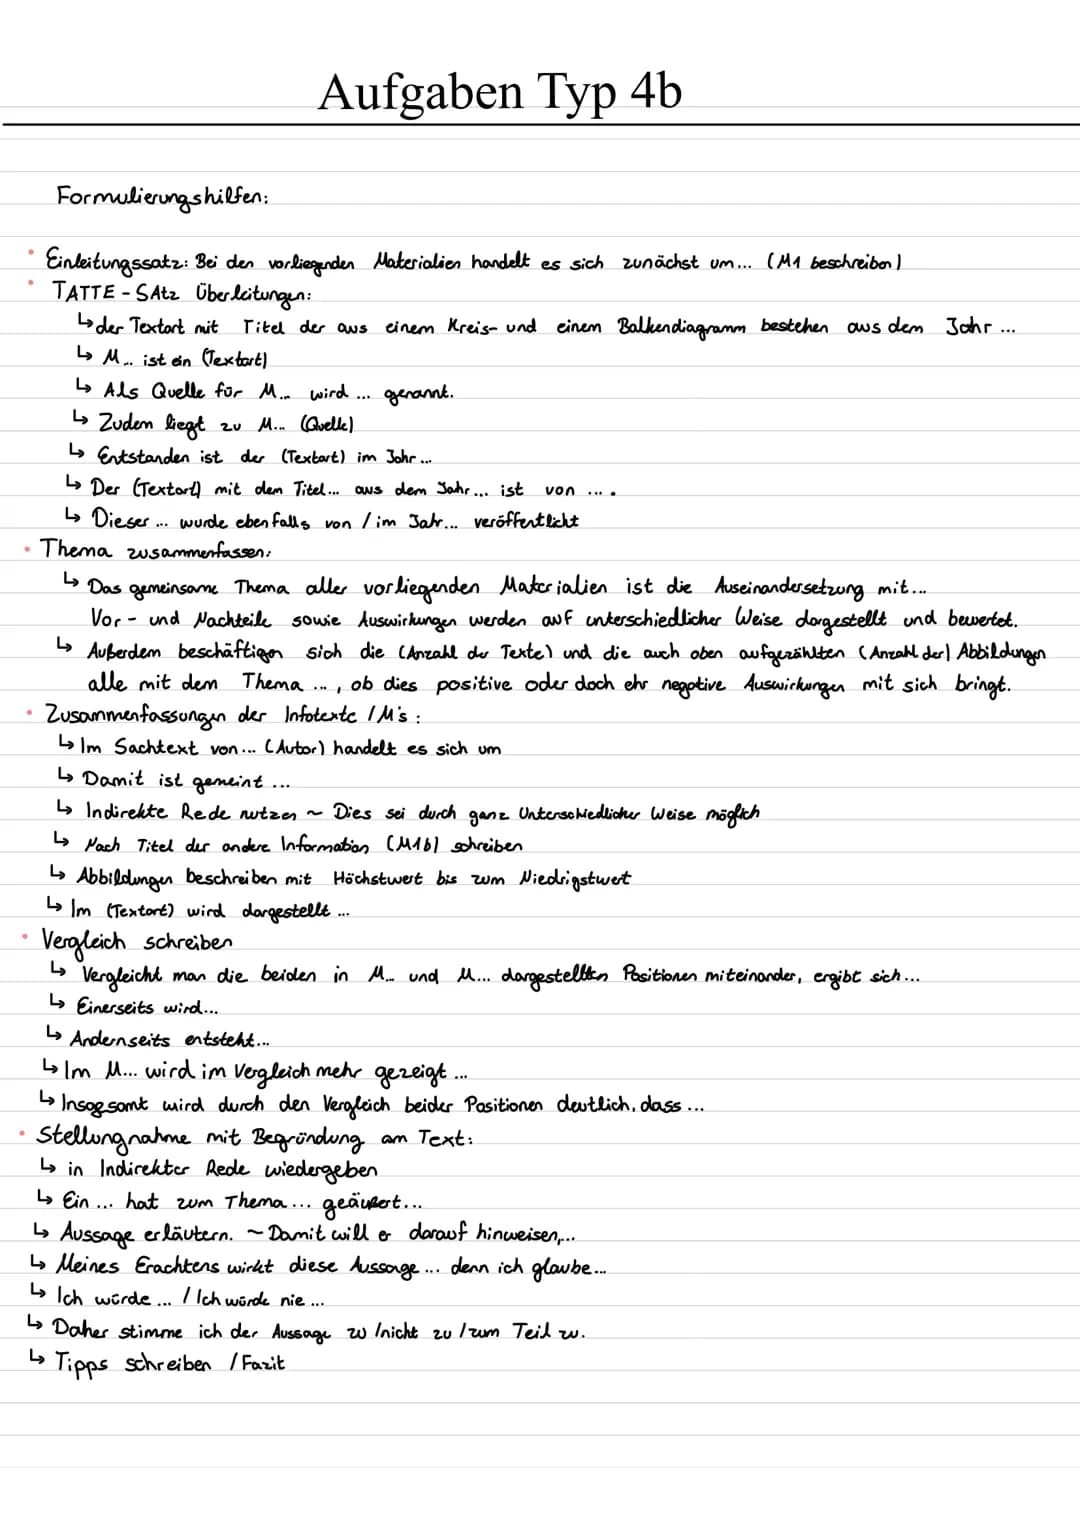 Aufgaben Typ 4b
Formulierungshilfen:
• Einleitungssatz: Bei den vorliegenden Materialien handelt es sich zunächst um... (M1 beschreiben)
• TATTE-SAtz Überleitungen:
↳ der Textart mit Titel der aus einem Kreis- und einem Balkendiagramm bestehen aus dem Jahr ...
↳ M... ist ein (Textart)
↳ Als Quelle für M... wird ... genannt.
↳ Zudem liegt zu M... (Quelle)
↳ Entstanden ist der (Textart) im Jahr ...
↳ Der (Textart) mit dem Titel... aus dem Jahr... ist von ... .
↳ Dieser ... wurde ebenfalls von / im Jahr... veröffentlicht
• Thema zusammenfassen:
↳ Das gemeinsame Thema aller vorliegenden Materialien ist die Auseinandersetzung mit...
Vor- und Nachteile sowie Auswirkungen werden auf unterschiedlicher Weise dargestellt und bewertet.
↳ Außerdem beschäftigen sich die (Anzahl der Texte) und die auch oben aufgezählten (Anzahl der) Abbildungen
alle mit dem Thema ..., ob dies positive oder doch ehr negative Auswirkungen mit sich bringt.
• Zusammenfassungen der Infotexte / M's :
↳ Im Sachtext von... (Autor) handelt es sich um
↳ Damit ist gemeint ...
↳ Indirekte Rede nutzen ~ Dies sei durch ganz Unterschiedlicher Weise möglich
↳ Nach Titel der andere Information (M1b) schreiben
↳ Abbildungen beschreiben mit Höchstwert bis zum Niedrigstwert
↳ Im (Textart) wird dargestellt ...
• Vergleich schreiben
↳ Vergleicht man die beiden in M... und M... dargestellten Positionen miteinander, ergibt sich ...
↳ Einerseits wird...
↳ Andernseits entsteht...
↳ Im M... wird im Vergleich mehr gezeigt ...
↳ Insgesamt wird durch den Vergleich beider Positionen deutlich, dass ...
• Stellungnahme mit Begründung am Text:
↳ in Indirekter Rede wiedergeben
↳ Ein ... hat zum Thema ... geäußert...
↳ Aussage erläutern. ~ Damit will er darauf hinweisen,...
↳ Meines Erachtens wirkt diese Aussage ... denn ich glaube...
↳ Ich würde ... / Ich würde nie ...
↳ Daher stimme ich der Aussage zu /nicht zu / zum Teil zu.
↳ Tipps schreiben / Fazit